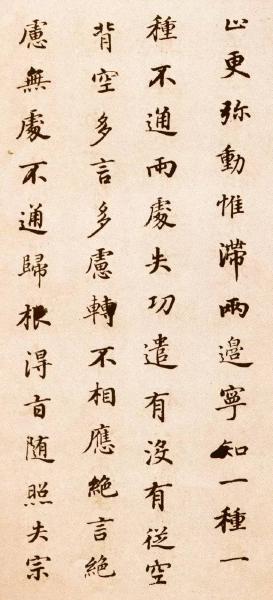 止更弥動惟滞兩邊寧知一種一
種不通兩處失功遣有沒有從空
背空多言多慮轉不相應絶言絶
慮無處不通歸根得旨随照失宗